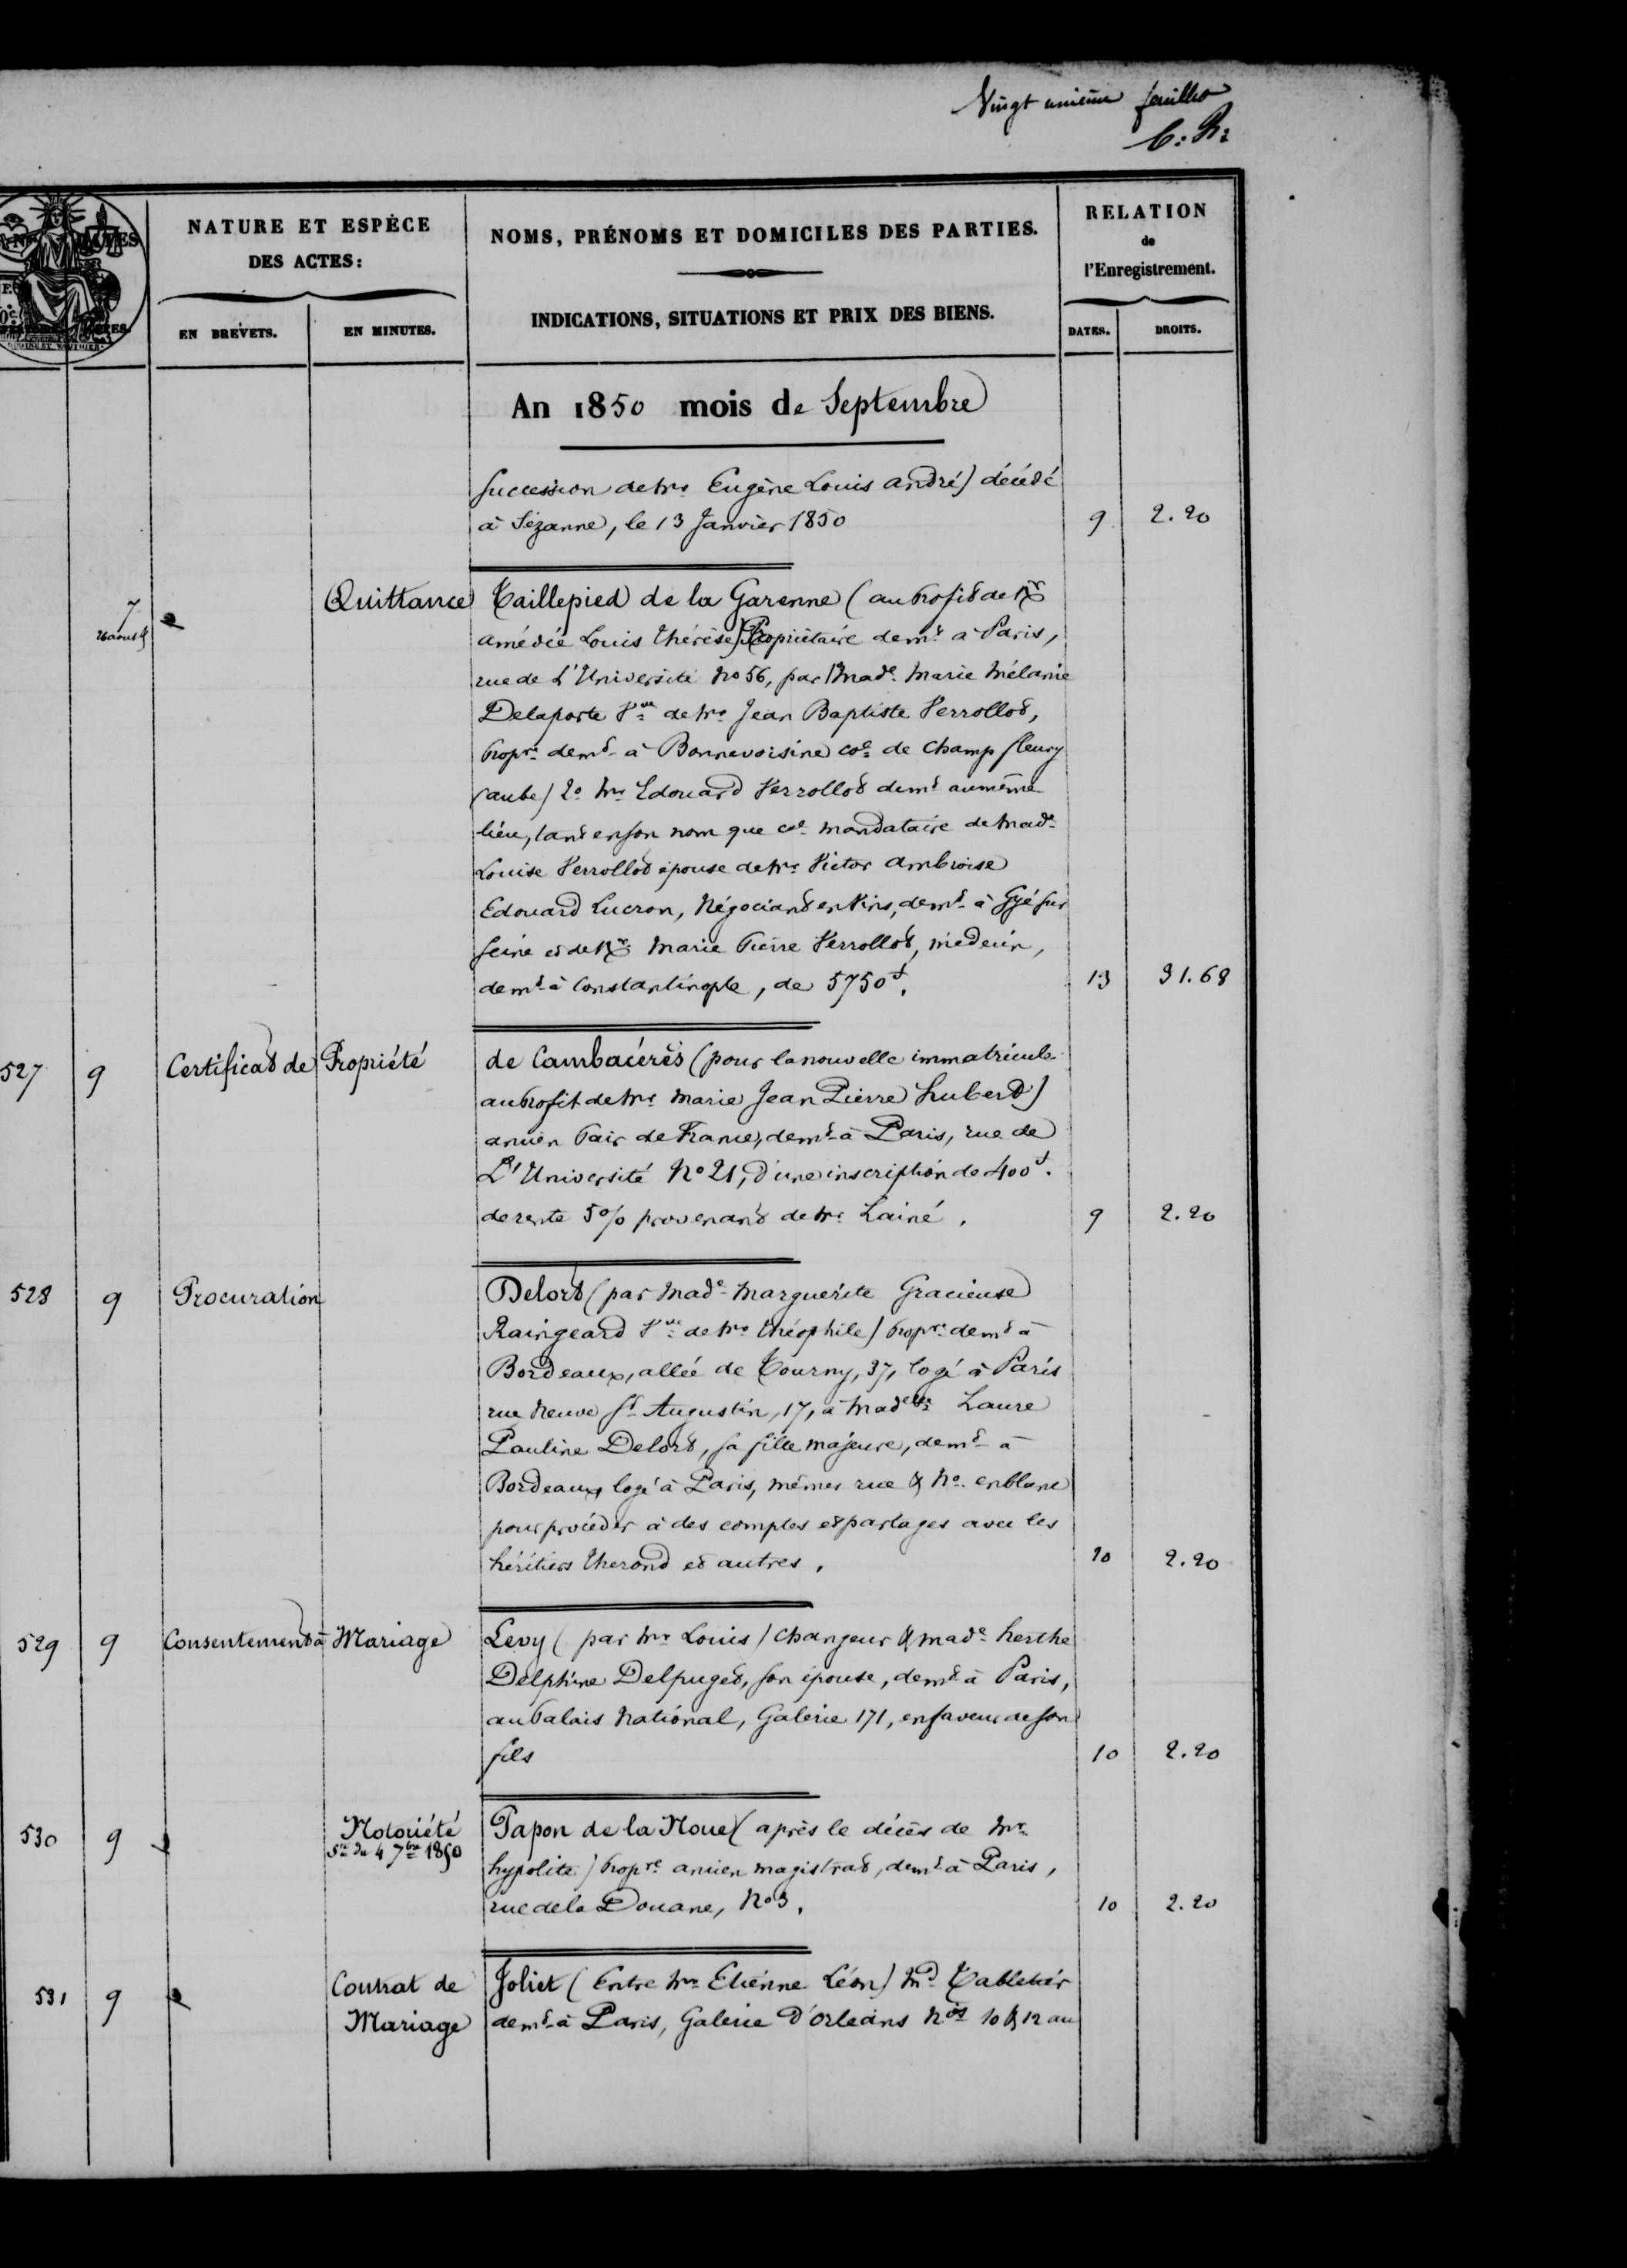 Vingt unième feuillet
C: R:
NATURE ET ESPÈCE
DES ACTES:
EN BREVETS.
EN MINUTES.
NOMS, PRÉNOMS ET DOMICILES DES PARTIES.
INDICATIONS, SITUATIONS ET PRIX DES BIENS.
RELATION
de
l'Enregistrement.
DATES.
DROITS.
An 1850 mois de Septembre
succession de Mr. Eugène Louis André) décédé
à Sézanne, le 13 Janvier 1850 9 2.20
7 Quittance Taillepied de la Garenne (au profit de Mr
26 aout
amédée Louis Thérèse) Propriétaire demt à Paris,
rue de L'Université No 56, par 1° Made Marie Mélanie
Delaporte Vve de Mr Jean Baptiste Verrollot,
propre demt à Bonnevoisine coe de Champfleury
(aube) 2° Mr Edouard Verrollot demt au même
lieu, tant en son nom que coe mandataire de Made
Louise Verrollot épouse de Mr Victor Ambroise
Edouard Lucron, Négociant en Vins, demt à Gyé sur
Seine et de Mr Marie Pierre Verrollot, médecin,
demt à Constantinople, de 5750f. 13 31.68
527 9 Certificat de Propriété de Cambacérès (pour la nouvelle immatricule
au profit de Mr Marie Jean Pierre Hubert)
ancien Pair de France, demt à Paris, rue de
L'Université No 21, d'une inscription de 400f.
de rente 5% provenant de Mr Lainé. 9 2.20
528 9 Procuration Delort (par Made Marguerite Gracieuse
Raingeard Vve de Mr Théophile) propre demt à
Bordeaux, allée de Tourny, 37, logé à Paris
rue Neuve St Augustin, 17, à Madelle Laure
Pauline Delort, sa fille majeure, demt à
Bordeaux, logé à Paris, mêmes rue & No. en blanc
pour procéder à des comptes et partages avec les
héritiers Therond et autres. 10 2.20
529 9 Consentement à Mariage Levy (par Mr Louis) changeur & made herthe
Delphine Delpuget, son épouse, demt à Paris,
au Palais National, Galerie 171, en faveur de son
fils 10 2.20
530 9 Notoriété Papon de la Noue (après le décès de Mr
du 4 7bre 1850
hypolite) propre ancien magistrat, demt à Paris,
rue de la Douane, No 3. 10 2.20
531 9 Contrat de Joliet (Entre Mr Etiénne Léon) Md Tabletiér
Mariage demt à Paris, Galerie D'Orleans Nos 10 & 12 au